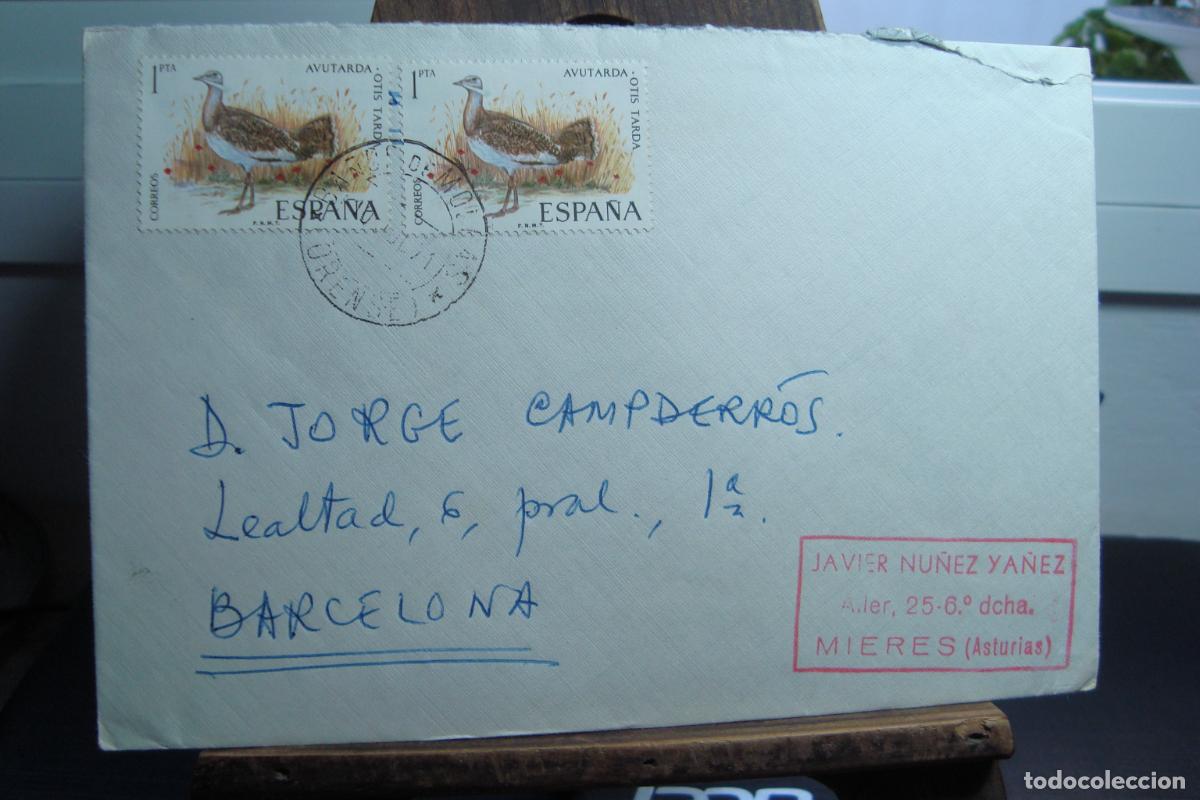 1 PTA AVUTARDA · OTIS TARDA
CORREOS F.N.M.T. ESPAÑA
1 PTA AVUTARDA · OTIS TARDA
CORREOS F.N.M.T. ESPAÑA
(ORENSE)
D. JORGE CAMPDERRÓS.
Lealtad, 6, pral., 1ª.
BARCELONA
JAVIER NUÑEZ YAÑEZ
Aller, 25-6.º dcha.
MIERES (Asturias)
todocoleccion